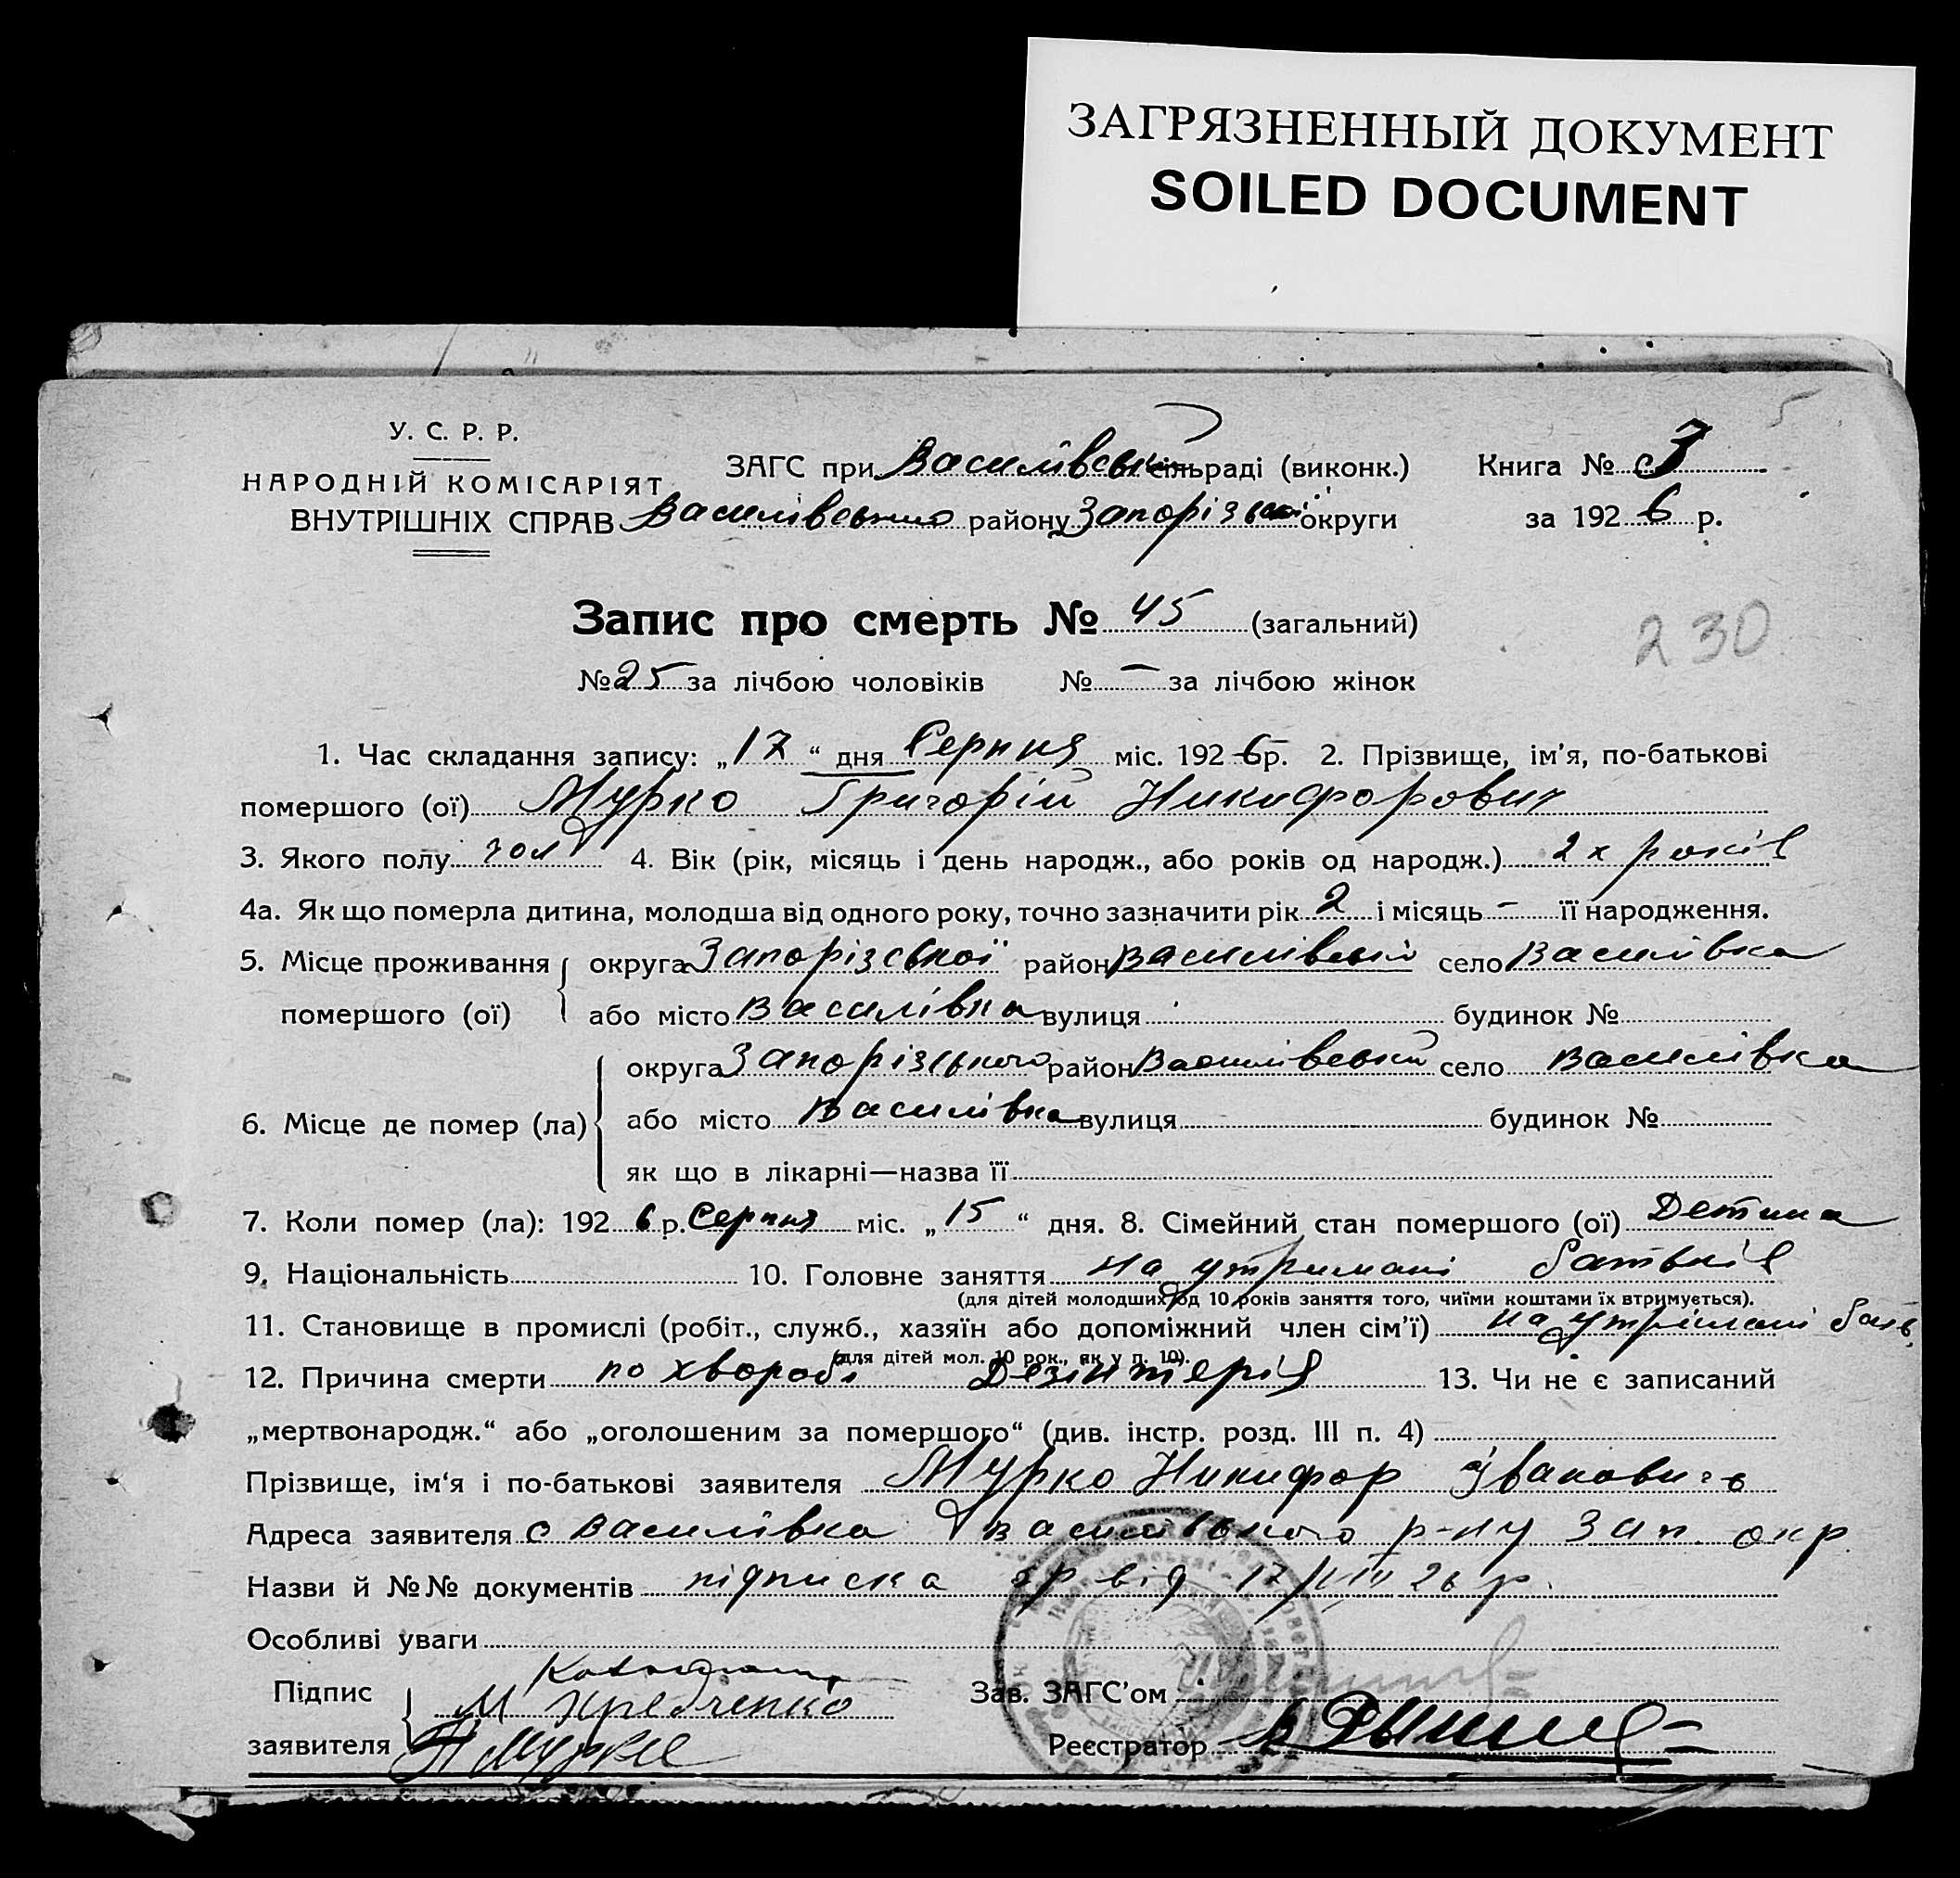 ЗАГРЯЗНЕННЫЙ ДОКУМЕНТ
SOILED DOCUMENT
5
У. С. Р. Р.
НАРОДНІЙ КОМІСАРІЯТ
ВНУТРІШНІХ СПРАВ
ЗАГС при Василівській сільраді (виконк.)
Василівського району Запорізської округи
Книга № 3
за 1926 р.
Запис про смерть № 45 (загальний)
230
№ 25 за лічбою чоловіків № — за лічбою жінок
1. Час складання запису: „17“ дня Серпня міс. 1926 р. 2. Прізвище, ім'я, по-батькові
помершого (ої) Мурко Григорій Никифорович
3. Якого полу чол 4. Вік (рік, місяць і день народж., або років од народж.) 2х років
4а. Як що померла дитина, молодша від одного року, точно зазначити рік 2 і місяць - її народження.
5. Місце проживання округа Запорізської район Василівський село Василівка
помершого (ої) або місто Василівка вулиця будинок №
округа Запорізського район Василівський село Василівка
6. Місце де помер (ла) або місто Василівка вулиця будинок №
як що в лікарні—назва її
7. Коли помер (ла): 1926 р. Серпня міс. „15“ дня. 8. Сімейний стан помершого (ої) Детина
9. Національність 10. Головне заняття на утримані батьків
(для дітей молодших од 10 років заняття того, чиїми коштами їх втримується).
11. Становище в промислі (робіт., служб., хазяїн або допоміжний член сім'ї) на утрімані бать.
(для дітей мол. 10 рок., як у п. 10).
12. Причина смерти по хворобі Дезінтерія 13. Чи не є записаний
„мертвонародж.“ або „оголошеним за помершого“ (див. інстр. розд. III п. 4)
Прізвище, ім‘я і по-батькові заявителя Мурко Никифор Іванович
Адреса заявителя с Василівка Василівського р-ну Зап. окр.
Назви й №№ документів підписка гр від 17/VIII 26 р.
Особливі уваги
Підпис Зав. ЗАГС'ом
заявителя Н Мурко Реєстратор